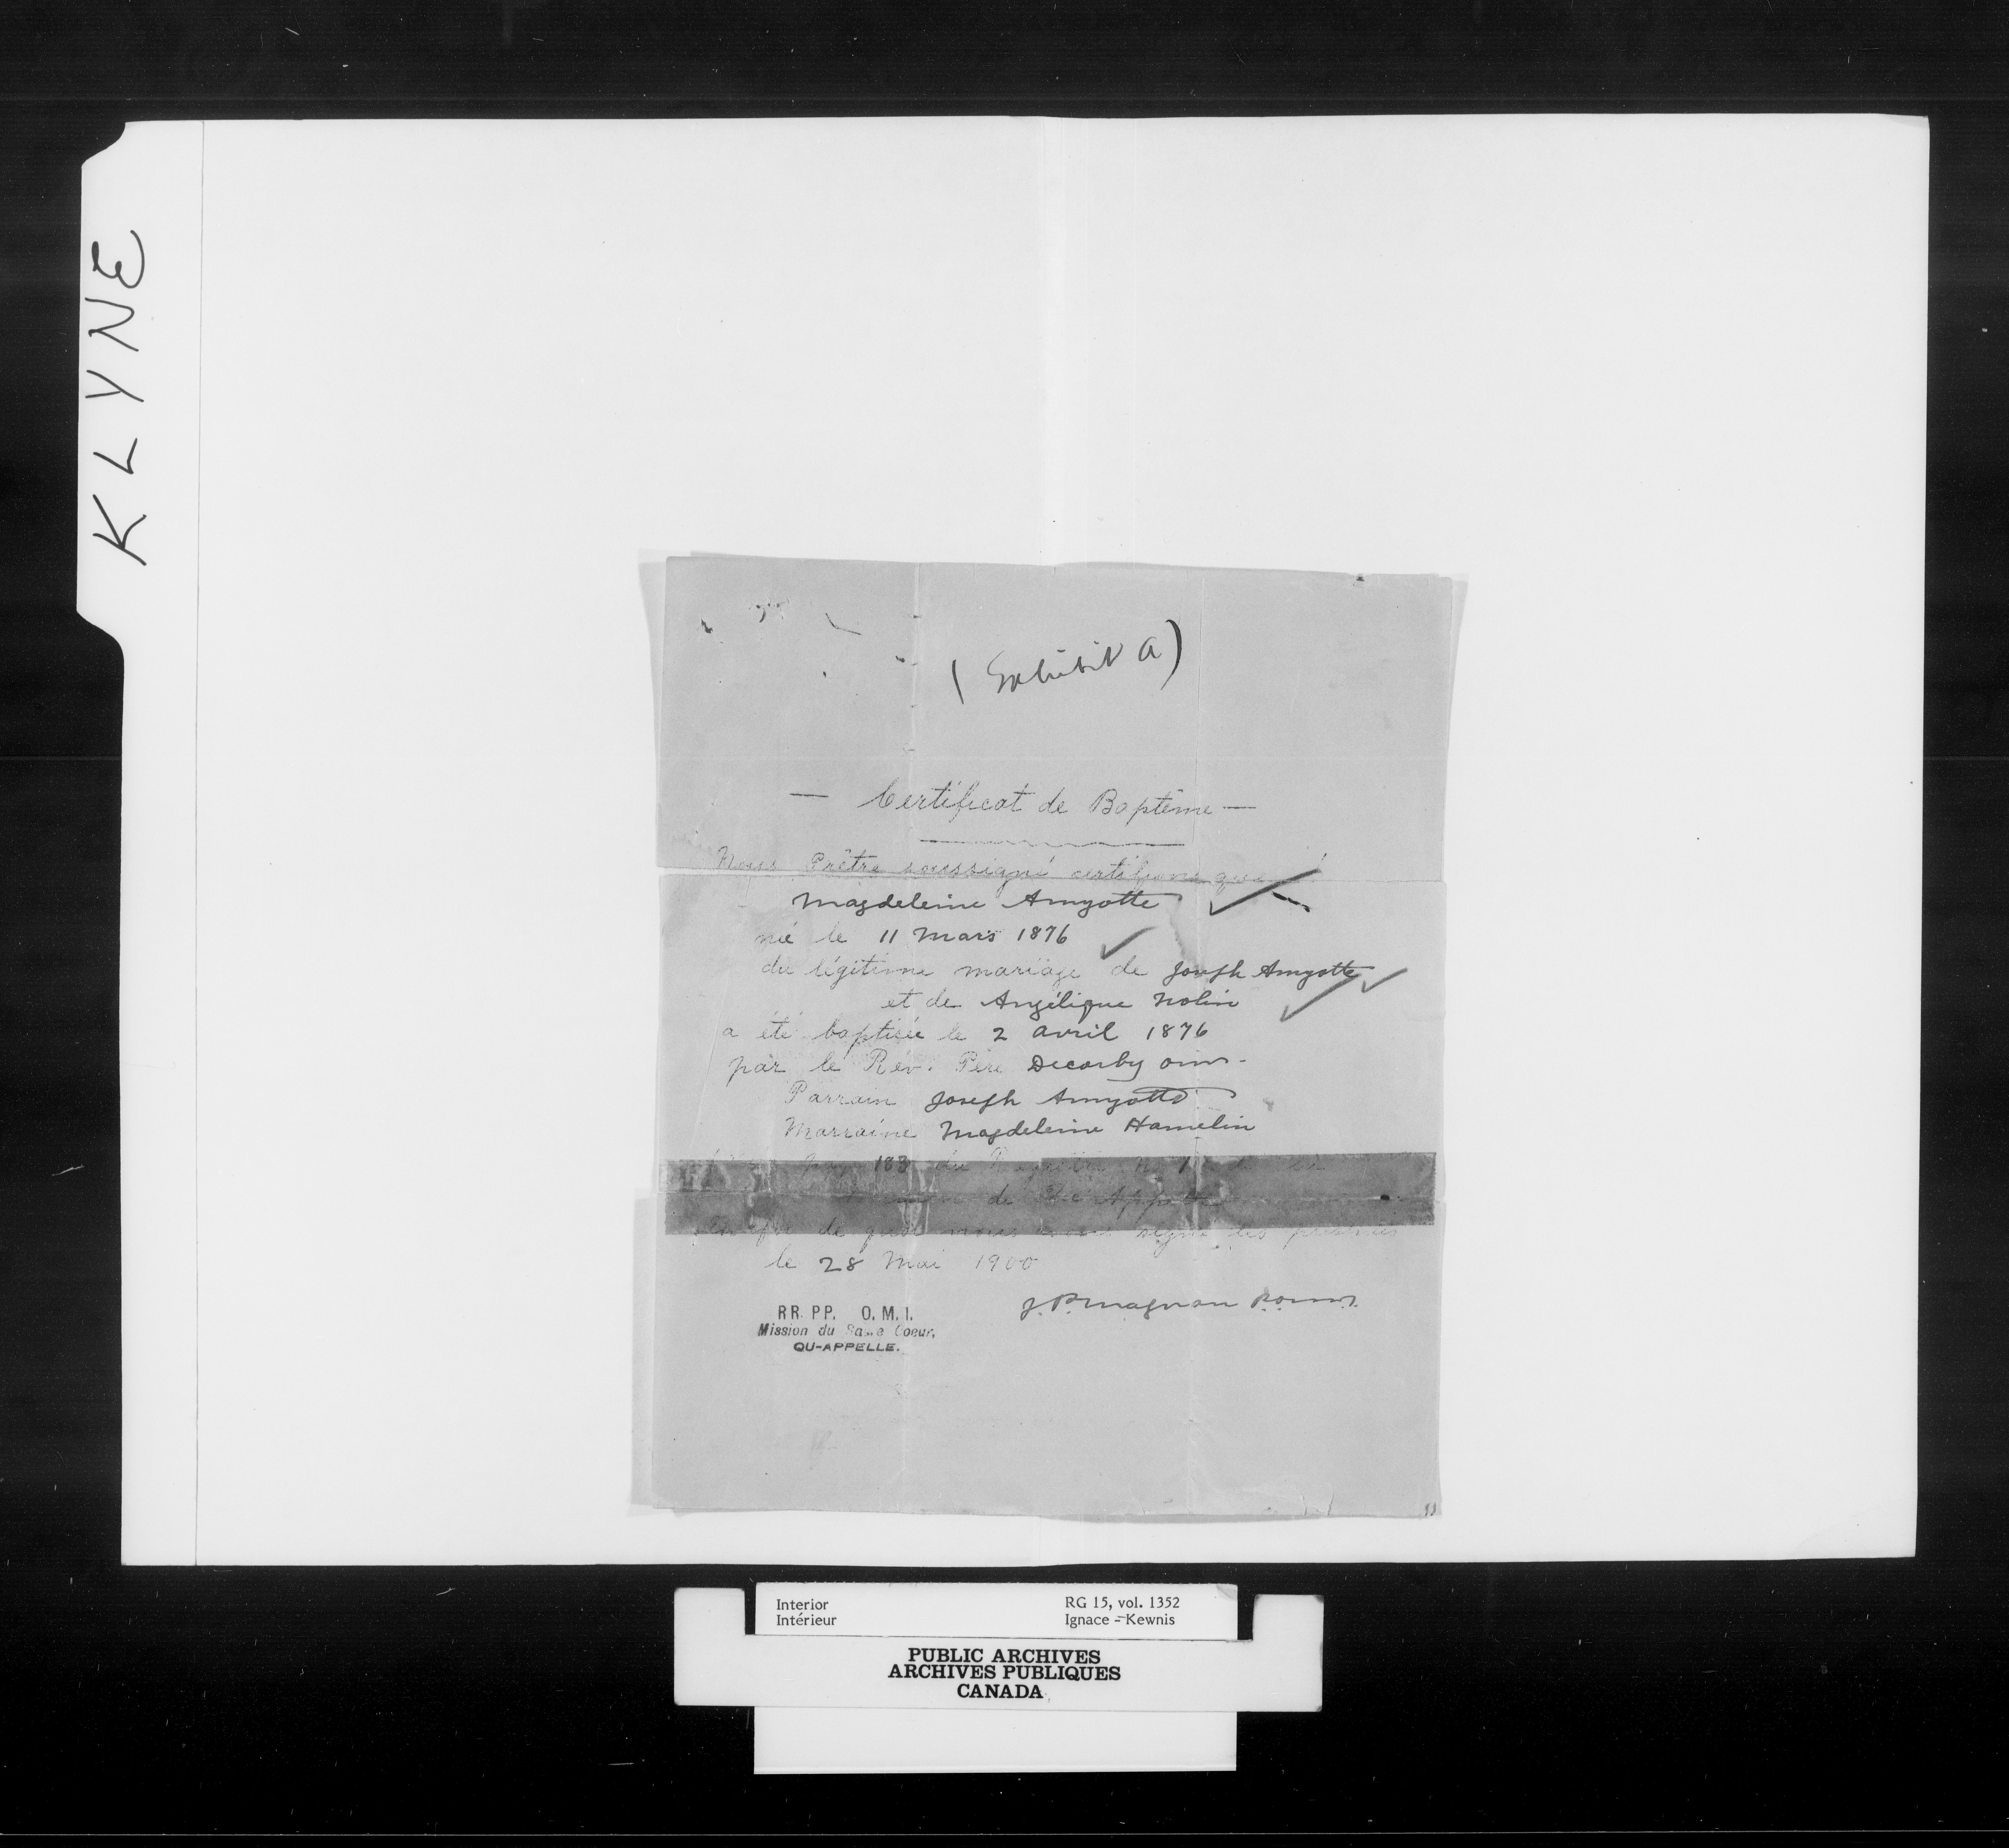 KLYNE
(Exhibit A)
— Certificat de Baptême —
Nous Prêtre soussigné certifions que
Magdeleine Amyotte
né le 11 Mars 1876
du légitime mariage de Joseph Amyotte
et de Angélique Nolin
a été baptisée le 2 avril 1876
par le Rév. Père Decorby omi.
Parrain Joseph Amyotte
Marraine Magdeleine Hamelin
183 du Registre No 1 de la
de Qu'Appelle
de quoi nous avons signé les présentes
le 28 Mai 1900
J. P. Magnan P.o.m.i.
RR. PP. O. M. I.
Mission du Sacré Coeur,
QU-APPELLE.
Interior
Intérieur
RG 15, vol. 1352
Ignace - Kewnis
PUBLIC ARCHIVES
ARCHIVES PUBLIQUES
CANADA